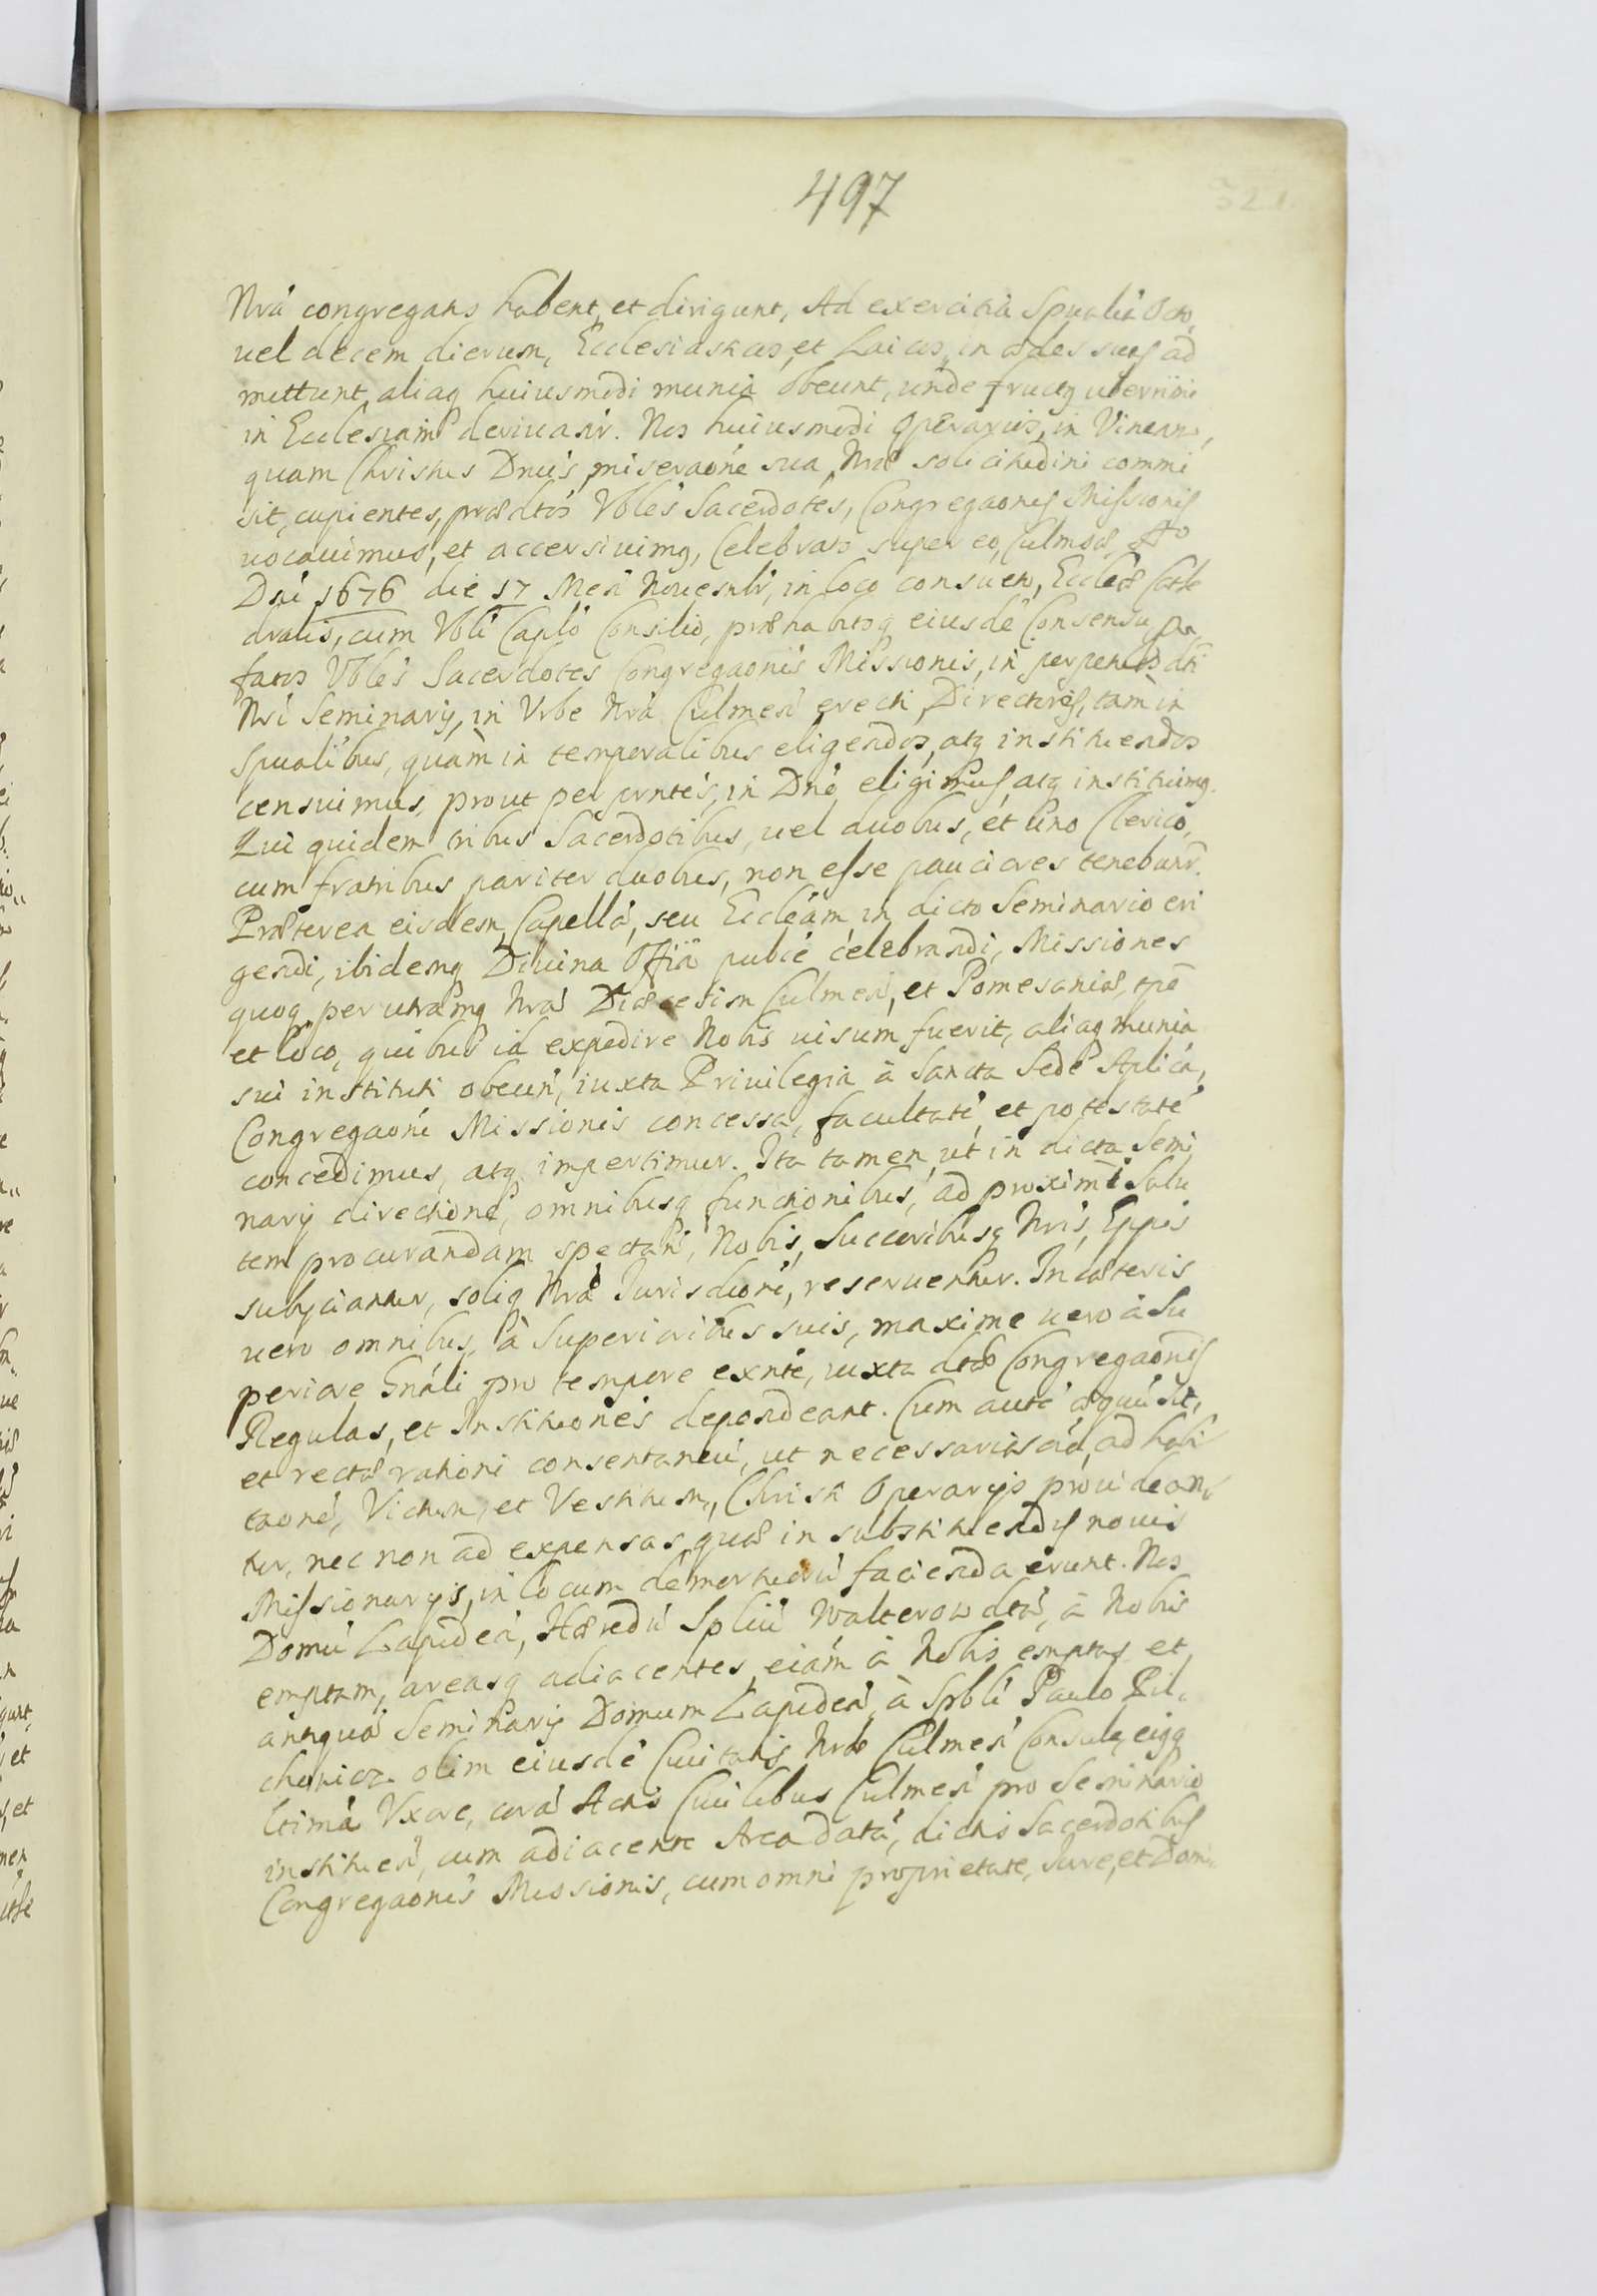 497
321.
Nrá congregatis habent, et dirigunt, Ad exercitia Spualiá Octo,
uel decem dierum, Ecclesiasticos, et Laicos, in ædes suas ad
mittunt, aliaq huiusmodi munia obeunt, unde fructq uberrimi
in Ecclesiam deriuantr. Nos huiusmodi Operarios, in Vineam,
quam Christus Dnús, miseraoné sua, Nræ solicitudini commi
sit, cupientes, prædtos Vblés Sacerdotes, Congregaonis Missionis
uocauimus, et accersiuimq, Celebrato super eo, Culmsæ, Ao
Dni 1676 die 17 Mens Nouembr, in loco consueto, Eccleæ Cathe
dralis, cum Vbli Capló Consilio, præhabitoq eiusdé Consensu præ
fatos Vblés Sacerdotes Congregaonis Missionis, in perpetuos dti
Nri Seminarij, in Vrbe Nrá Culmesi erecti, Directores, tam in
Spualibus, quàm in temporalibus eligendos, atq instituendos
censuimus, prout per prntés, in Dno eligimus, atq instituimq.
Qui quidem tribus Sacerdotibus, uel duobus, et Uno Clerico,
cum fratribus pariter duobus, non esse pauciores tenebuntr.
Præterea eisdem, Capellá, seu Eccleám, in dicto Seminario eri
gendi, ibidemq Diuina Offia publcé celebrandi, Missiones
quoq per utramq Nrá Diæcesim Culmen, et Pomesaniæ, tpé
et loco, quibus id expedire Nobis uisum fuerit, aliaq munia
sui instituti obeun, iuxta Priuilegia à Sancta Sede Aplicá,
Congregaoni Missionis concessa, facultaté, et potestaté
concedimus, atq impertimur. Ita tamen, ut in dicta Semi
narij directione, omnibusq functionibus, ad proximi Salu
tem procurandam spectan, Nobis, Succoribusq Nris, Eppis
subijciantur, soliq Nræ Jurisdioni, reseruentur. In cæteris
uero omnibus, à Superioribus suis, maxime uero à Su
periore Gnáli pro tempore exnté, iuxta dtæ Congregaonis
Regulas, et Institutionés dependeant. Cum auté æquú sit,
et rectæ rationi consentaneú, ut necessaria oiá, ad habi
taoné, Victum, et Vestitum, Christi Operarijs prouidean
tur, nec non ad expensas quæ in substituendis nouis
Missionarijs, in locum demortuorú facienda erunt. Nos
Domú Lapideá, Hæredú Spliú Walterow dtá, à Nobis
emptam, areasq adiacentes, eiám à Nobis emptas et
antiquá Seminarij Domum Lapideá, à Spbli Paulo Pil,
chowicz olim eiusdé Ciuitatis Nræ Culmen Consule, eiqq
ltimá Vxore, corá Actis Ciuilibus Culmen pro Seminario
instituen, cum adiacente Area datá, dictis Sacerdotibus
Congregaonis Missionis, cum omni proprietate, Iure, et Domi,